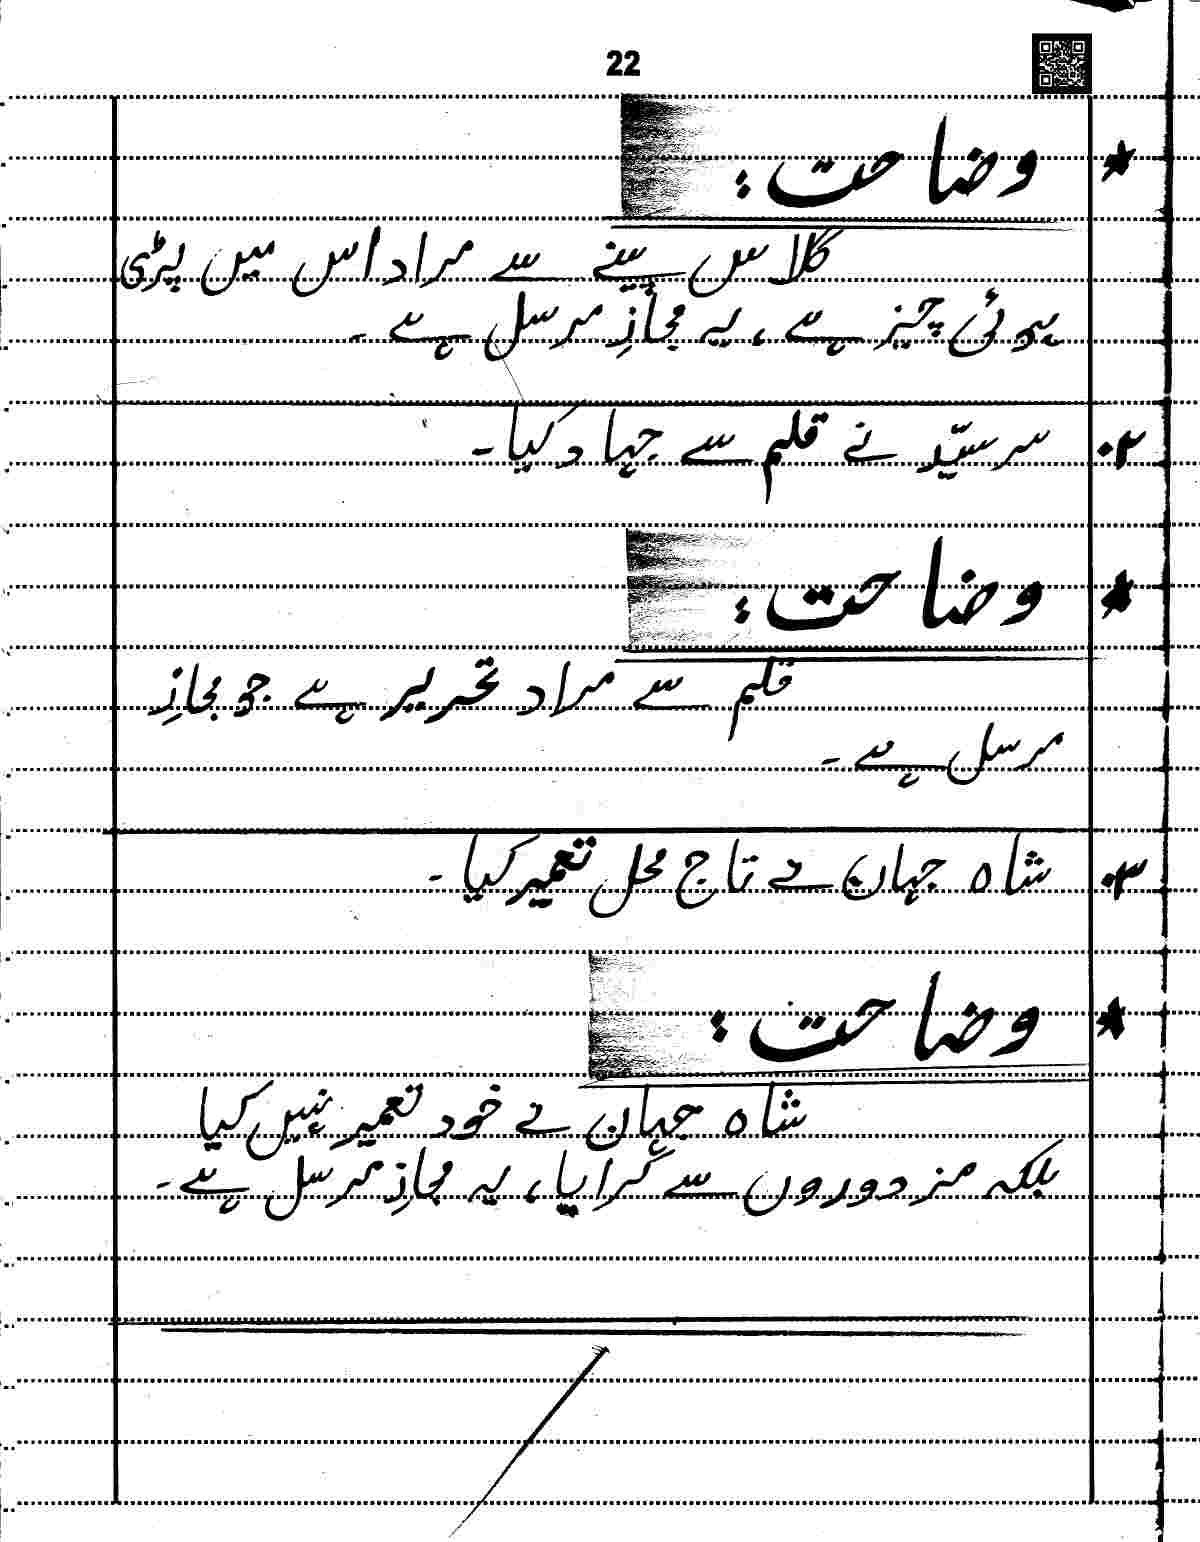 22
* وضاحت:
گلاس پینے سے مراد اس میں پڑی
ہوئی چیز ہے، یہ مجازِ مرسل ہے۔
۲. سرسیّد نے قلم سے جہاد کیا۔
* وضاحت:
قلم سے مراد تحریر ہے جو مجازِ
مرسل ہے۔
۳. شاہ جہان نے تاج محل تعمیر کیا۔
* وضاحت:
شاہ جہان نے خود تعمیر نہیں کیا
بلکہ مزدوروں سے کرایا، یہ مجازِ مرسل ہے۔